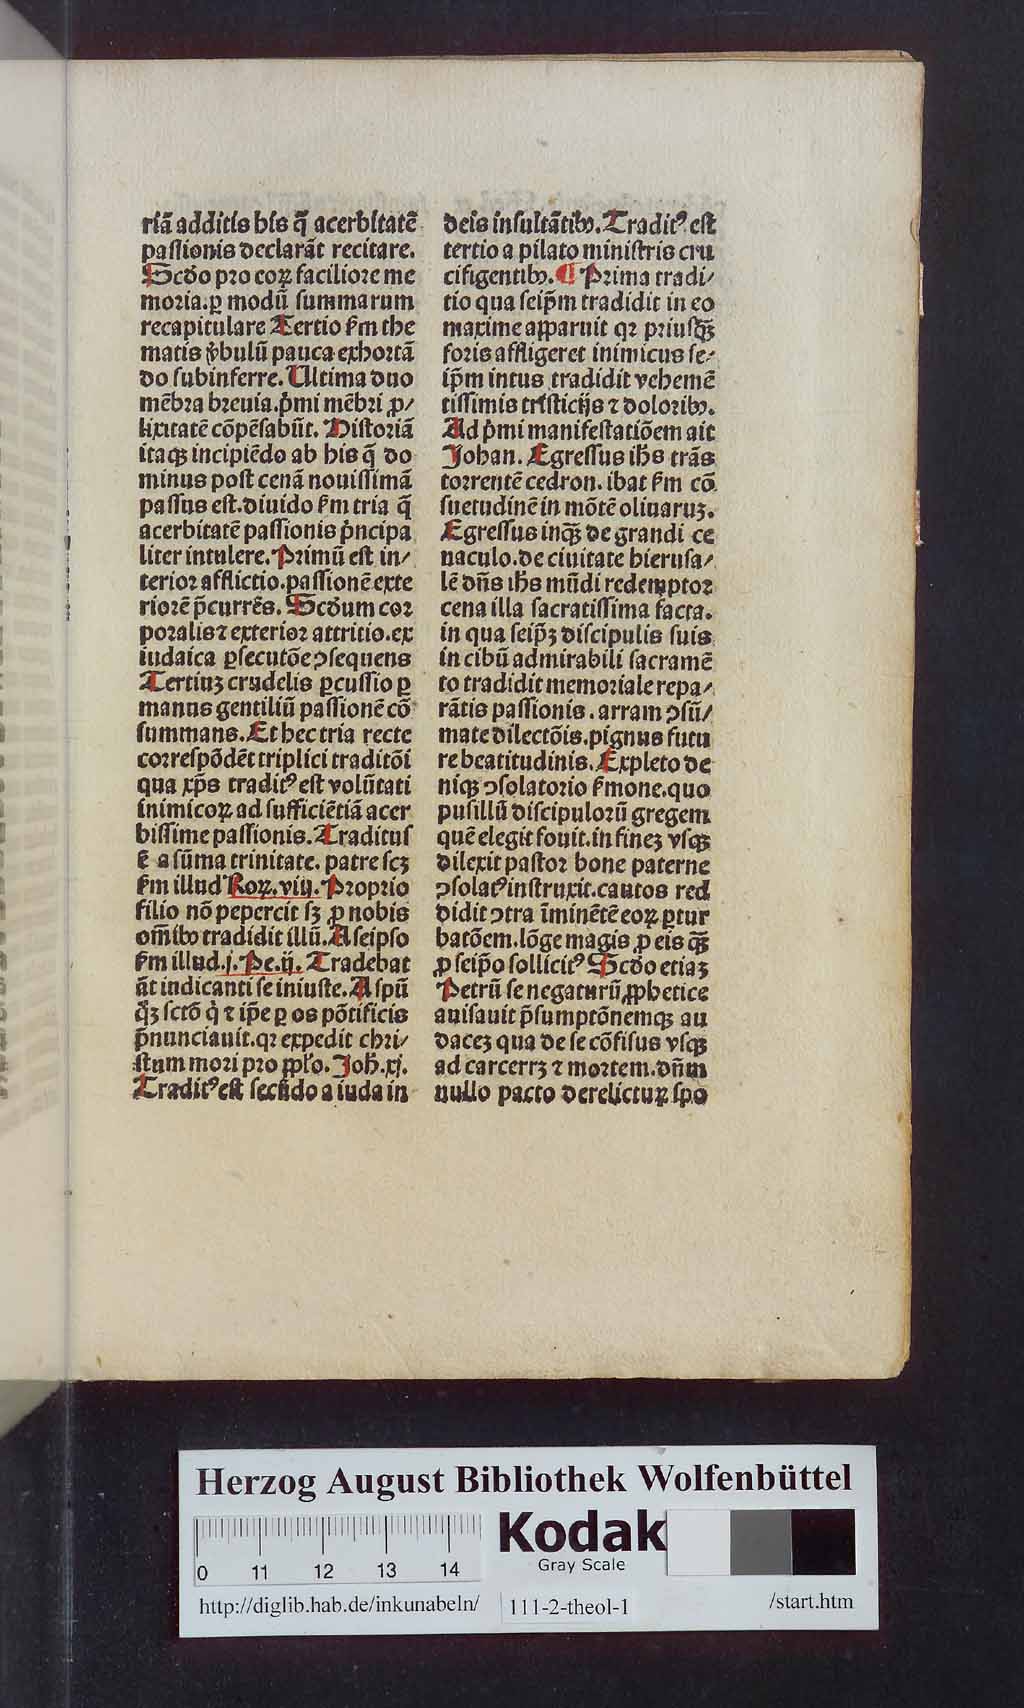 riā additis his q̄ acerbitatē
passionis declarāt recitare.
Scd̓o pro eoꝝ faciliore me
moria.ꝑ modū summarum
recapitulare Tertio ẜm the
matis ꝟbulū pauca exhortā
do subinferre. Ultima duo
mēbra breuia.p̓mi mēbri ꝓ/
lixitatē cōpēsabūt. Historiā
itaqꝫ incipiēdo ab his q̄ do
minus post cenā nouissimā
passus est.diuido ẜm tria q̄
acerbitatē passionis p̓ncipa
liter intulere. Primū est in/
terior afflictio.passionē exte
riorē p̄currēs. Scd̓um cor
poralis ⁊ exterior attritio.ex
iudaica ꝑsecutōe ꝯsequens
Tertiuꝫ crudelis ꝑcussio ꝑ
manus gentiliū passionē cō
summans. Et hec tria recte
correspōdēt triplici traditōi
qua xp̄s traditꝰ est volūtati
inimicoꝝ ad sufficiētiā acer
bissime passionis. Traditus
ē a sūma trinitate. patre scꝫ
ẜm illud Roꝝ.viij. Proprio
filio nō pepercit sꝫ ꝓ nobis
om̄ibꝰ tradidit illū. A seipso
ẜm illud.j. Pe.ij. Tradebat
āt indicanti se iniuste. A spū
q̓ꝫ sctō q̓ ⁊ ip̄e ꝑ os pōtificis
p̄nunciauit.qꝛ expedit chri/
stum mori pro ppło. Joh̄.xj.
Traditꝰ est secūdo a iuda in
deis insultātibꝰ. Traditꝰ est
tertio a pilato ministris cru
cifigentibꝰ. ¶ Prima tradi/
tio qua seip̄m tradidit in eo
maxime apparuit qꝛ priusqꝫ
foris affligeret inimicus se/
ip̄m intus tradidit vehemē
tissimis tristicijs ⁊ doloribꝰ.
Ad p̓mi manifestatiōem ait
Johan. Egressus ih̄s trās
torrentē cedron. ibat ẜm cō
suetudinē in mōtē oliuaruꝫ.
Egressus inqꝫ de grandi ce
naculo.de ciuitate hierusa/
lē dn̄s ih̄s mūdi redemptor
cena illa sacratissima facta.
in qua seip̄ꝫ discipulis suis
in cibū admirabili sacramē
to tradidit memoriale repa/
rātis passionis . arram ꝯsū/
mate dilectōis.pignus futu
re beatitudinis. Expleto de
niqꝫ ꝯsolatorio ẜmone.quo
pusillū discipulorū gregem
quē elegit fouit.in fineꝫ vsqꝫ
dilexit pastor bone paterne
ꝯsolatꝰ instruxit.cautos red
didit ꝯtra īminētē eoꝝ ꝑtur
batōem.lōge magis ꝓ eis qꝫ
ꝓ seip̄o sollicitꝰ Scd̓o etiaꝫ
Petrū se negaturū ꝓphetice
auisauit p̄sumptōnemqꝫ au
daceꝫ qua de se cōfisus vsqꝫ
ad carcerrꝫ ⁊ mortem.dn̄m
nullo pacto derelicturꝝ spo
Herzog August Bibliothek Wolfenbüttel
0 11 12 13 14
Kodak
Gray Scale
http://diglib.hab.de/inkunabeln/ 111-2-theol-1 /start.htm